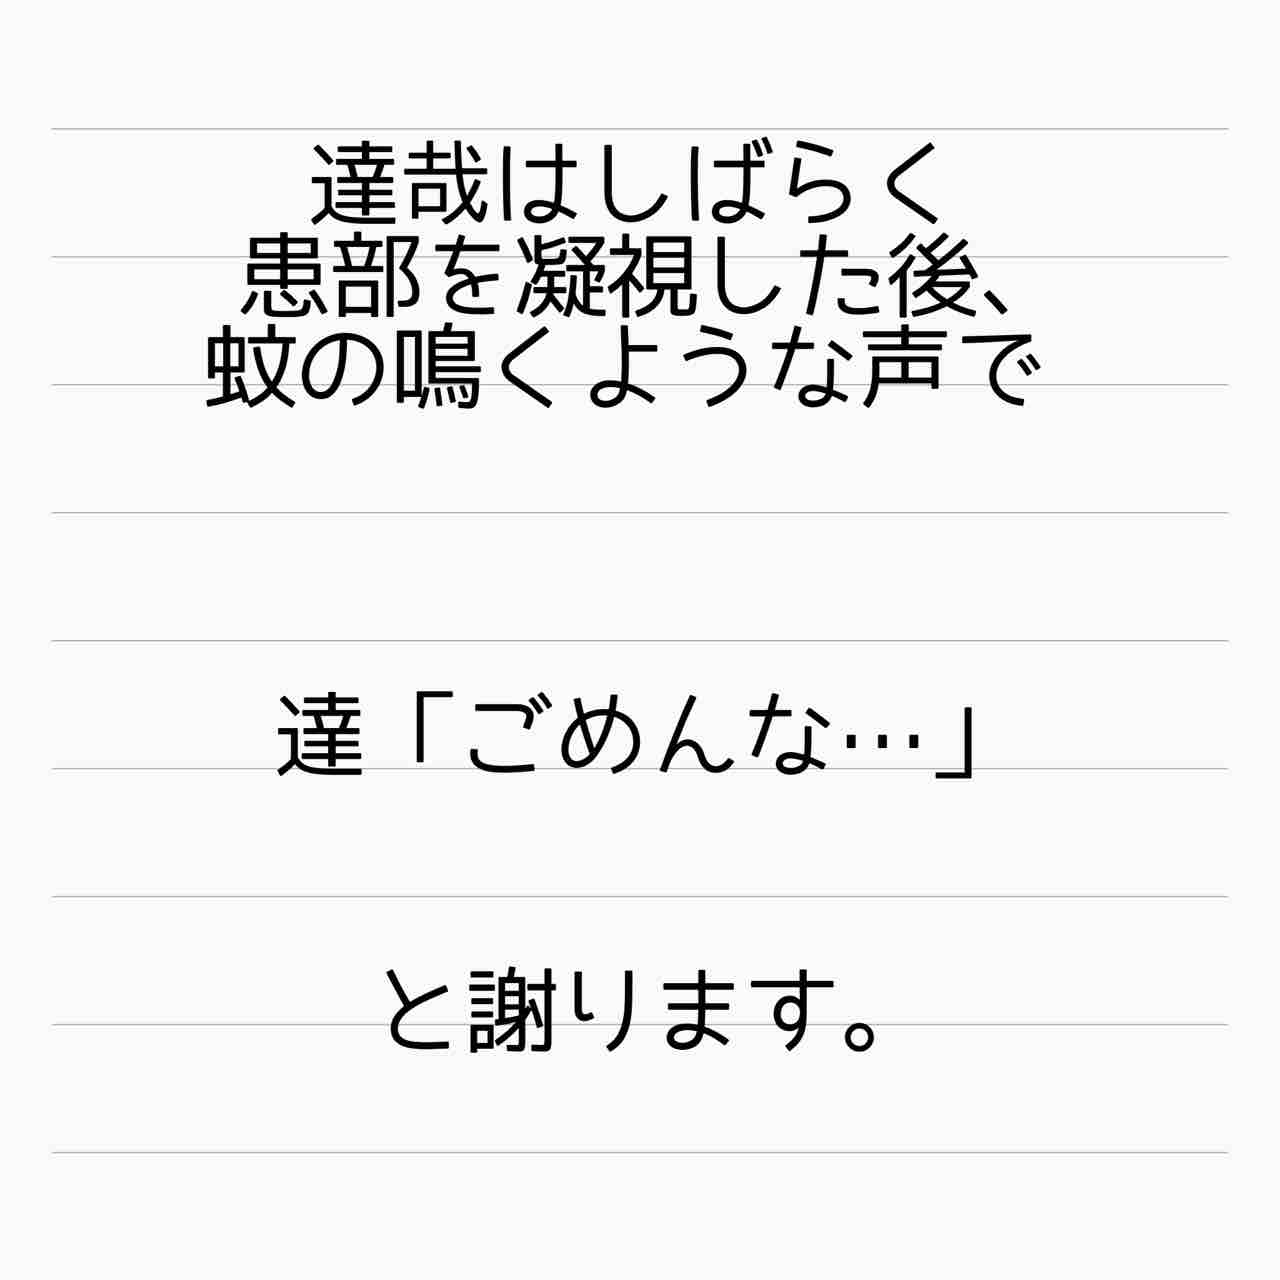 達哉はしばらく
患部を凝視した後、
蚊の鳴くような声で
達「ごめんな…」
と謝ります。